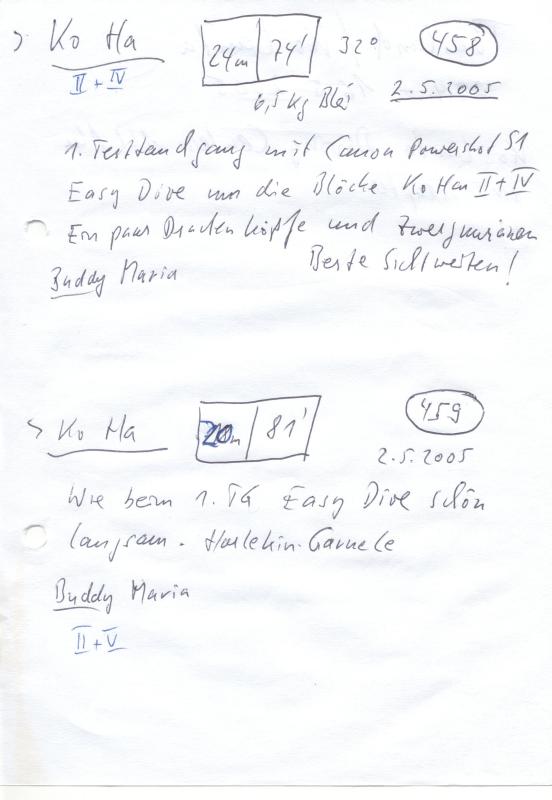 > Ko Ha 24m 74' 32° 458
II + IV 6,5 kg Blei 2.5.2005
1. Testtandgang mit Canon Powershot S1
Easy Dive um die Blöcke Ko Ha II + IV
Ein paar Drachenköpfe und Zwergmuränen
Beste Sichtweiten!
Buddy Maria
> Ko Ha 20m 81' 459
2.5.2005
Wie beim 1. TG Easy Dive schön
langsam. Harlekin-Garnele
Buddy Maria
II + V